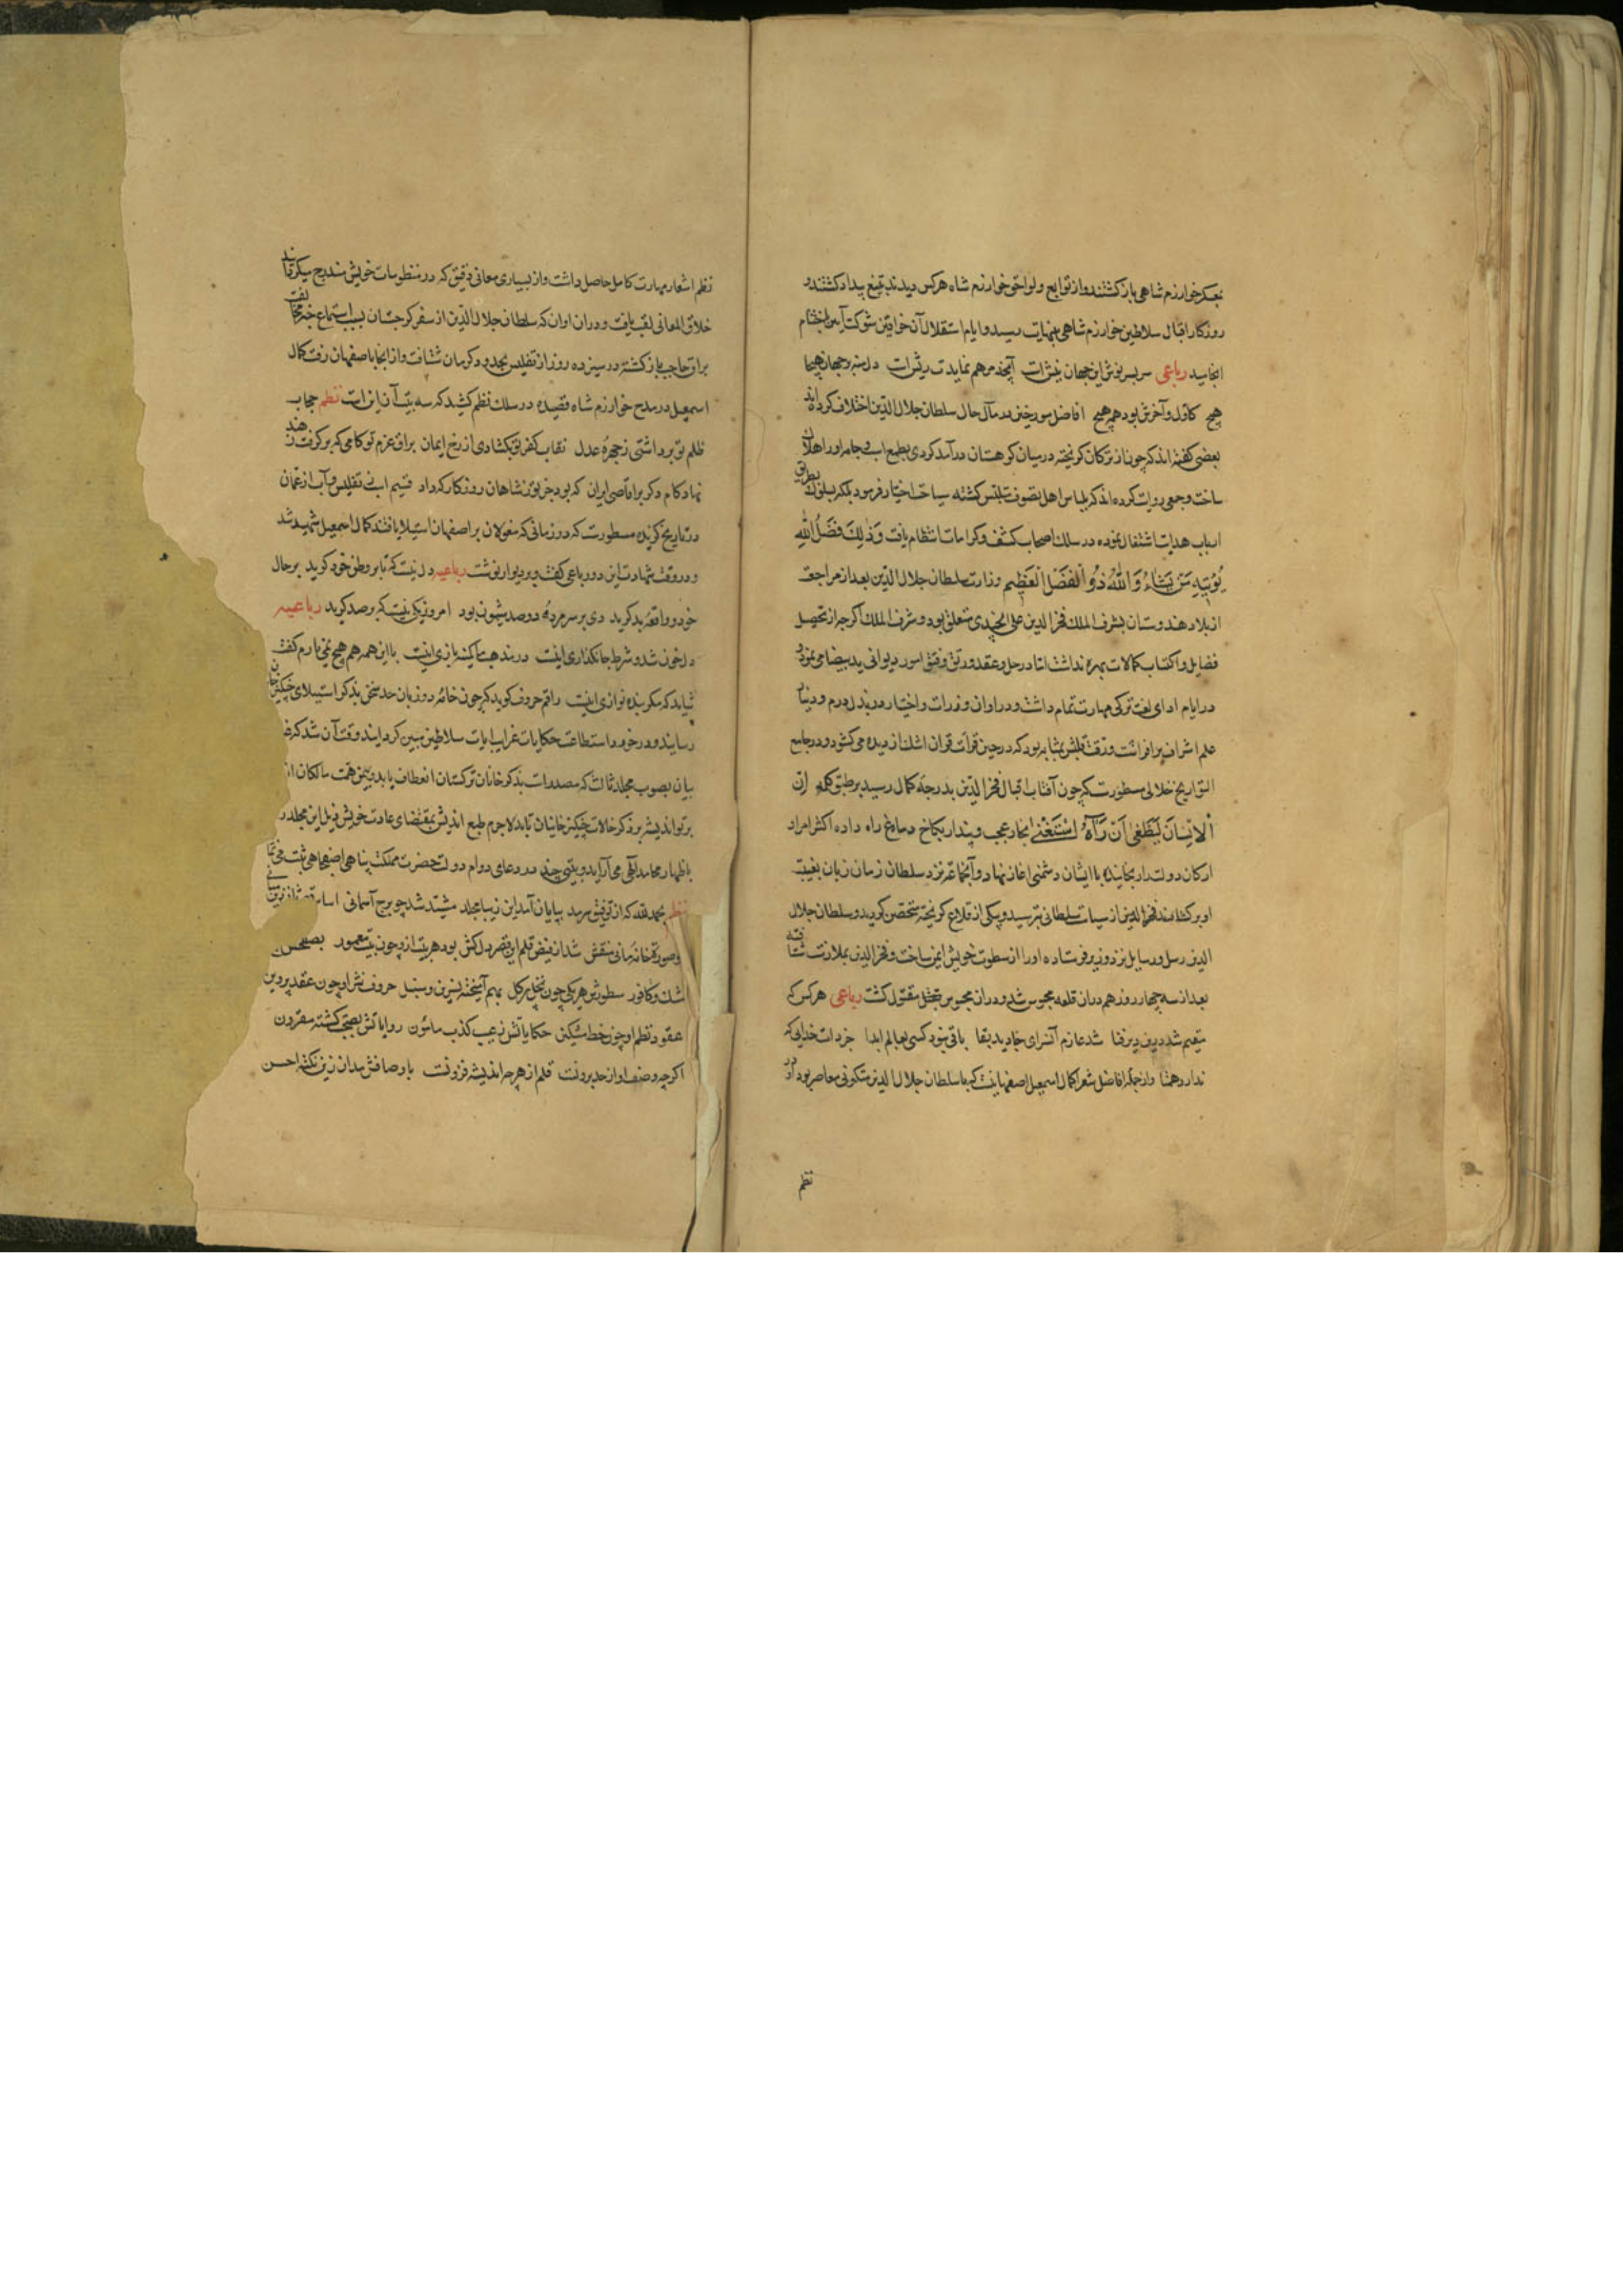 بعسکر خوارزم شاهی باز کشتند و از توابع و لواحق خوارزم شاه هر کس دیدند بتیغ بیداد کشتند و
روزکار اقبال سلاطین خوارزم شاهی بنهایت رسید و ایام استقلال آن خواقین شوکت آیین باختتام
انجامید رباعی سر بسر نوش این جهان نیش است آنچه مرهم نمایدت ریش است دل منه بر جهان هیچا
هیچ کاول و آخرش بود هم هیچ افاضل مورخین در مآل حال سلطان جلال الدین اختلاف کرده‌اند
بعضی کفته اند که چون از ترکان کریخته در میان کوهستان درآمد کردی بطمع اسب و جامه او را هلاک
ساخت و جمعی روایت کرده اند که بلباس اهل تصوف متلبس کشته سیاحت اختیار فرمود بلکه بسلوک طریق
ارباب هدایت اشتغال نموده در سلک اصحاب کشف و کرامات انتظام یافت وَذٰلِكَ فَضْلُ اللّٰهِ
یُؤتِیهِ مَنْ یَشَاءُ وَاللّٰهُ ذُو الْفَضْلِ الْعَظِیمِ وزارت سلطان جلال الدین بعد از مراجعت
از بلاد هندوستان بشرف الملک فخر الدین علی الجندی متعلق بود و شرف الملک اکرچه از تحصیل
فضایل و اکتساب کمالات بهره نداشت اما در حل و عقد و رتق و فتق امور دیوانی ید بیضا می نمود و
در ایام ادای لغت ترکی مهارت تمام داشت و در اوان وزارت و اختیار در بذل درم و دینار
علم اشراف برافراشت و رقت قلبش بمثابه بود که در حین قرآت قرآن اشک از دیده می کشود و در جامع
التواریخ جلالی مسطور است که چون آفتاب اقبال فخر الدین بدرجه کمال رسید بر طبق کلمه اِنَّ
الْاِنْسَانَ لَیَطْغٰی اَنْ رَآهُ اسْتَغْنٰی بخار عجب و پندار بکاخ دماغ راه داده اکثر امرا و
ارکان دولت را برنجانیده با ایشان دشمنی اغاز نهاد و آنجماعه نزد سلطان زمان زبان بغیبت
او برکشادند فخر الدین از سیاست سلطانی بترسید و بیکی از قلاع کریخته متحصن کردید و سلطان جلال
الدین رسل و رسایل نزد وزیر فرستاده او را از سطوت خویش ایمن ساخت و فخر الدین بملازمت شتافته
بعد از سه چهار روز هم دران قلعه محبوس شد و دران محبوس بقتل مقتول کشت رباعی هر کس که
مقیم شد درین دیر فنا شد عازم آنسرای جاوید بقا باقی نبود کسی بعالم ابدا جز ذات خدایی که
ندارد همتا و از جمله افاضل شعرا کمال اسمعیل اصفهانیست که با سلطان جلال الدین منکوبرنی معاصر بود و در
نظم
نظم اشعار مهارت کامل حاصل داشت و از بسیاری معانی دقیق که در منظومات خویش مندرج میکردانید
خلاق المعانی لقب یافت و دران اوان که سلطان جلال الدین از سفر کرجستان بسبب استماع خبر مخالفت
براق حاجب باز کشته در سیزده روز از تفلیس بحدود کرمان شتافت و از انجا باصفهان رفت کمال
اسمعیل در مدح خوارزم شاه قصیده در سلک نظم کشید که سه بیت آن این است نظم حجاب
ظلم تو برداشتی ز چهره عدل نقاب کفر تو بکشادی از رخ ایمان براق عزم تو کامی که برکرفت ز هند
نهاد کام دکر بر اقاصی ایران که بود جز تو ز شاهان روزکار که داد قضیم اسپ ز تفلیس و آب از عمان
در تاریخ کزیده مسطور است که در زمانی که مغولان بر اصفهان استیلا یافتند کمال اسمعیل شهید شد
و در وقت شهادت این دو رباعی کفت و بر دیوار نوشت رباعیه دل نیست که تا بر وطن خود کرید بر حال
خود و واقعه بد کرید دی بر سر مرده دو صد شیون بود امروز یکی نیست که بر صد کرید رباعیه
دل خون شد و شرط جانکدازی اینست در بندهات کمینه بازی اینست با این همه هم هیچ نمی یارم کفت
شاید که مکر بنده نوازی اینست راقم حروف کوید که چون خامه دو زبان حد سخن بذکر استیلای چنکیز خان
رسانید و در خورد استطاعت حکایات غرایب ایات سلاطین مبین کردانید وقت آن شد که
بیان بصوب مجلد ثالث که مصدر است بذکر خانان ترکستان انعطاف یابد و بیمن همت مالکان
پرتو اندیشه بر ذکر حالات چنکیز خانیان تابد لاجرم طبع اندیش بمقتضای عادت خویش ذیل این مجلد
باظهار محامد الهی می آراید و بیتی چند در دعای دوام دولت حضرت مملکت پناهی ثبت می نماید
نظم بحمد الله که از توفیق سرمد بپایان آمد این زیبا مجلد مشید شد چو برج آسمانی
و صورتخانه مانی منقش شد از فیض قلم این قصر دلکش بود هر بیت ازو چون بیت معمور
مشک و کافور سطورش هر یکی چون نخل پر کل بهم آمیخته نسرین و سنبل حروف نثر او چون عقد پروین
عقود نظم او چون خط مشکین حکایاتش ز عیب کذب مامون روایاتش بصحت کشته مقرون
اکرچه وصف او از حد برونست قلم از هر چه اندیشه فزونست